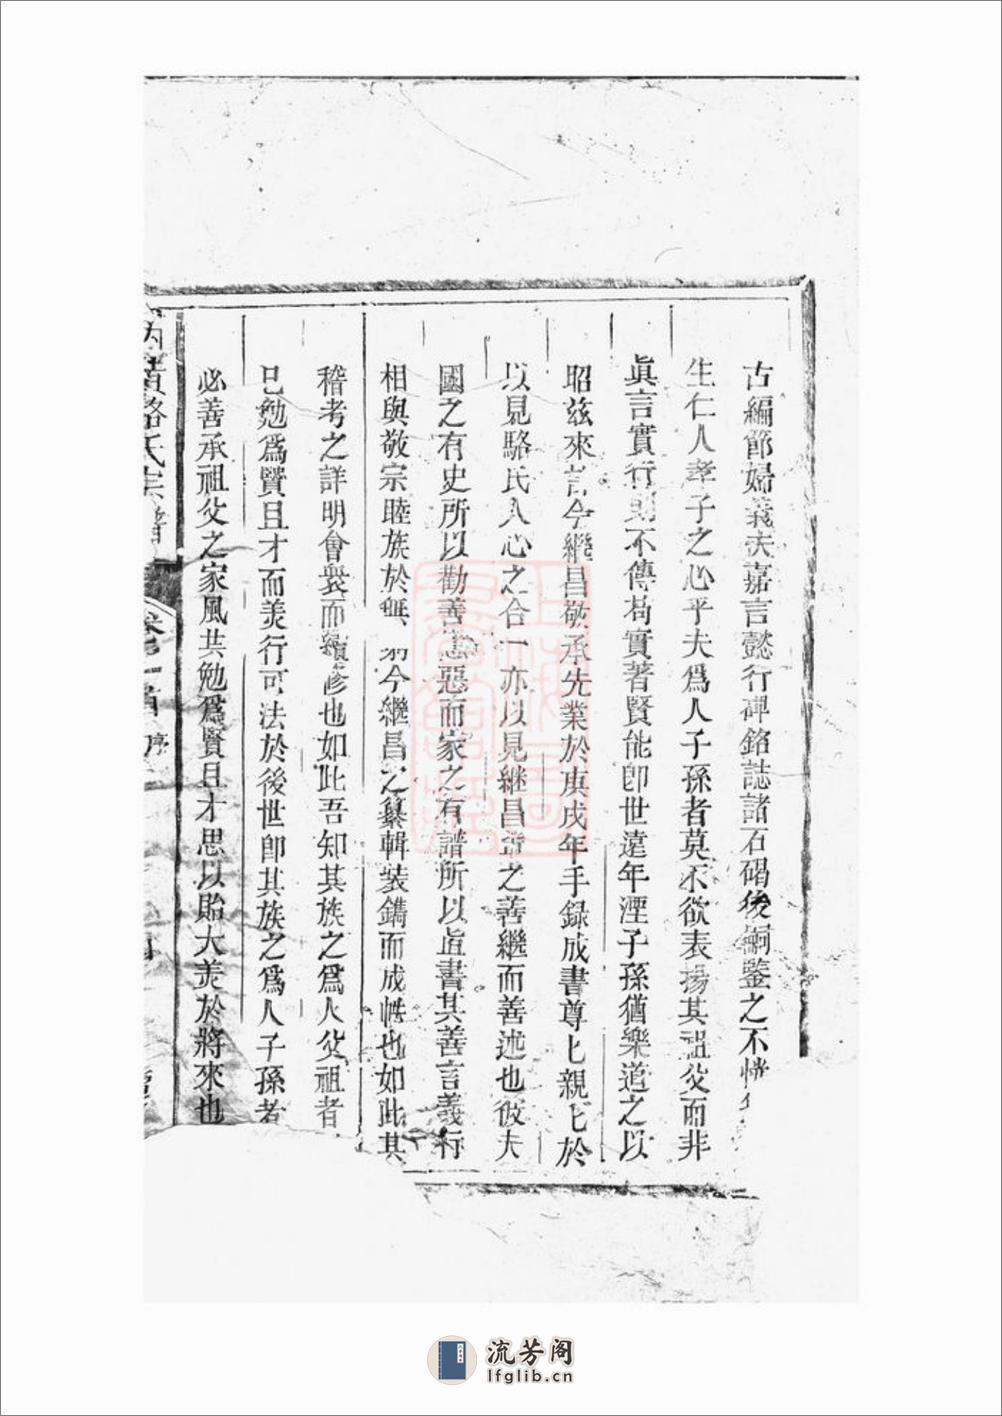 古編節婦義夫嘉言懿行碑銘誌諸石碣後嗣鑒之不
生仁人孝子之心乎夫爲人子孫者莫不欲表揚其祖父而非
眞言實行則不傳茍實著賢能卽世遠年湮子孫猶樂道之以
昭兹來言今繼昌敬承先業於庚戌年手録成書尊匕親匕於
以見駱氏人心之合一亦以見継昌之善繼而善述也彼夫
國之有史所以勸善懲惡而家之有譜所以直書其善言義行
相與敬宗睦族於無 今繼昌之纂輯裝鐫而成帙也如此其
稽考之詳明會衆而續修也如此吾知其族之爲人父祖者
已勉爲賢且才而美行可法於後世卽其族之爲人子孫者
必善承祖父之家風共勉爲賢且才思以貽大美於將來也
黃駱氏宗譜 卷一首 序
流芳阁
lfglib.cn